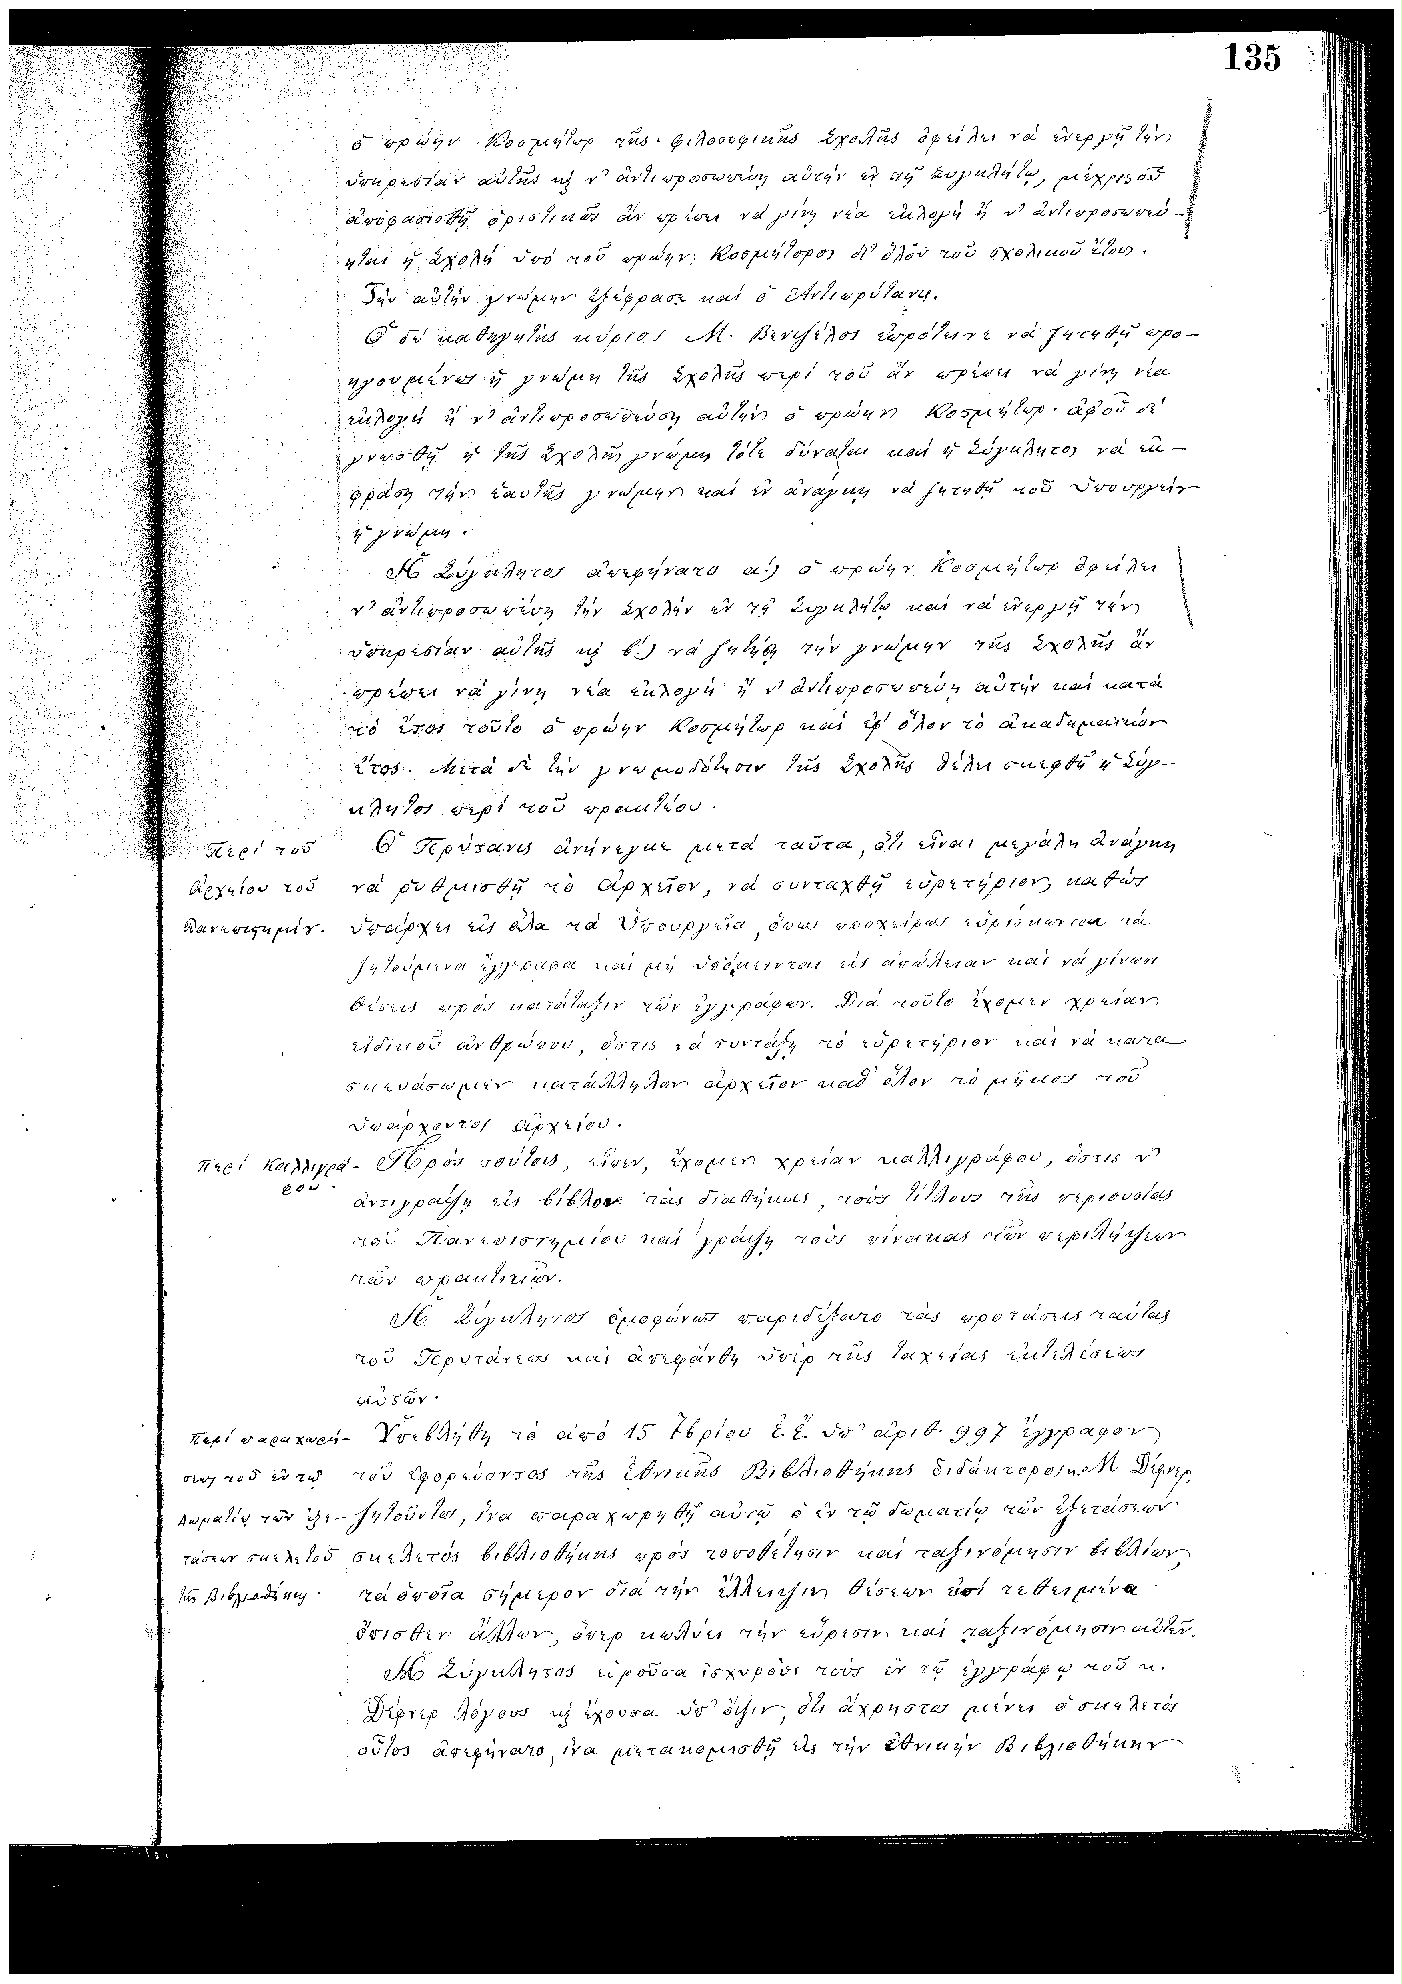 135
ὁ πρώην Κοσμήτωρ τῆς φιλοσοφικῆς Σχολῆς ὀφείλει νά ἐνεργῇ τήν
ὑπηρεσίαν αὐτῆς κ ν' ἀντιπροσωπεύῃ αὐτήν ἐν τῇ Συγκλήτῳ, μέχρις οὗ
ἀποφασισθῇ ὁριστικῶς ἄν πρέπει νά γίνῃ νέα ἐκλογή ἤ ν' ἀντιπροσωπεύ-
ηται ἡ Σχολή ὑπό τοῦ πρώην Κοσμήτορος δι' ὅλου τοῦ σχολικοῦ ἔτους.
Τήν αὐτήν γνώμην ἐξέφρασε καί ὁ Ἀντιπρύτανις.
Ὁ δέ καθηγητής κύριος Μ. Βενιζέλος ἐπρότεινε νά ζητηθῇ προ-
ηγουμένως ἡ γνώμη τῆς Σχολῆς περί τοῦ ἄν πρέπει νά γίνῃ νέα
ἐκλογή ἤ ν' ἀντιπροσωπεύσῃ αὐτήν ὁ πρώην Κοσμήτωρ· ἀφοῦ δέ
γνωσθῇ ἡ τῆς Σχολῆς γνώμη τότε δύναται καί ἡ Σύγκλητος νά ἐκ-
φράσῃ τήν ἑαυτῆς γνώμην καί ἐν ἀνάγκῃ νά ζητηθῇ τοῦ Ὑπουργείου
ἡ γνώμη.
Ἡ Σύγκλητος ἀπεφήνατο α΄.) ὁ πρώην Κοσμήτωρ ὀφείλει
ν' ἀντιπροσωπεύῃ τήν Σχολήν ἐν τῇ Συγκλήτῳ καί νά ἐνεργῇ τήν
ὑπηρεσίαν αὐτῆς κ β΄.) νά ζητήσῃ τήν γνώμην τῆς Σχολῆς ἄν
πρέπει νά γίνῃ νέα ἐκλογή ἤ ν' ἀντιπροσωπεύῃ αὐτήν καί κατά
τό ἔτος τοῦτο ὁ πρώην Κοσμήτωρ καί ἐφ' ὅλον τό ἀκαδημαϊκόν
ἔτος. Μετά δέ τήν γνωμοδότησιν τῆς Σχολῆς θέλει σκεφθῆ ἡ Σύγ-
κλητος περί τοῦ πρακτέου.
Περί τοῦ
Ἀρχείου τοῦ
Πανεπιστημίου.
Ὁ Πρύτανις ἀνήνεγκε μετά ταῦτα, ὅτι εἶναι μεγάλη ἀνάγκη
νά ῥυθμισθῇ τό Ἀρχεῖον, νά συνταχθῇ εὑρετήριον, καθώς
ὑπάρχει εἰς ὅλα τά Ὑπουργεῖα, ὅπως προχείρως εὑρίσκωνται τά
ζητούμενα ἔγγραφα καί μή ὑπόκεινται εἰς ἀπώλειαν καί νά γίνωσι
θέσεις πρός κατάταξιν τῶν ἐγγράφων. Διά τοῦτο ἔχομεν χρείαν
εἰδικοῦ ἀνθρώπου, ὅστις νά συντάξῃ τό εὑρετήριον καί νά κατα
σκευάσωμεν κατάλληλον ἀρχεῖον καθ' ὅλον τό μῆκος τοῦ
ὑπάρχοντος ἀρχείου.
Περί Καλλιγρά-
φου.
Πρός τούτοις, εἶπεν, ἔχομεν χρείαν καλλιγράφου, ὅστις ν'
ἀντιγράψῃ εἰς βίβλον τάς διαθήκας, τούς τίτλους τῆς περιουσίας
τοῦ Πανεπιστημίου καί γράψῃ τούς πίνακας τῶν περιλήψεων
τῶν πρακτικῶν.
Ἡ Σύγκλητος ὁμοφώνως παρεδέξατο τάς προτάσεις ταύτας
τοῦ Πρυτάνεως καί ἀπεφάνθη ὑπέρ τῆς ταχείας ἐκτελέσεως
αὐτῶν.
Περί παραχωρή-
σεως τοῦ ἐν τῷ
Δωματίῳ τῶν ἐξε-
τάσεων σκελετοῦ
τῆς Βιβλιοθήκης.
Ὑπεβλήθη τό ἀπό 15 7βρίου ἐ.ἔ. ὑπ' ἀριθ. 997 ἔγγραφον
τοῦ ἐφορεύοντος τῆς Ἐθνικῆς Βιβλιοθήκης διδάκτορος κ. Μ Δέφνερ
ζητοῦντος, ἵνα παραχωρηθῇ αὐτῷ ὁ ἐν τῷ δωματίῳ τῶν ἐξετάσεων
σκελετός βιβλιοθήκης πρός τοποθέτησιν καί ταξινόμησιν βιβλίων,
τά ὁποῖα σήμερον διά τήν ἔλλειψιν θέσεων εἰσί τεθειμένα
ὄπισθεν ἄλλων, ὅπερ κωλύει τήν εὕρεσιν καί ταξινόμησιν αὐτῶν.
Ἡ Σύγκλητος εὑροῦσα ἰσχυρούς τούς ἐν τῷ ἐγγράφῳ τοῦ κ.
Δέφνερ λόγους κ ἔχουσα ὑπ' ὄψιν, ὅτι ἄχρηστος μένει ὁ σκελετός
οὗτος ἀπεφήνατο, ἵνα μετακομισθῇ εἰς τήν Ἐθνικήν Βιβλιοθήκην